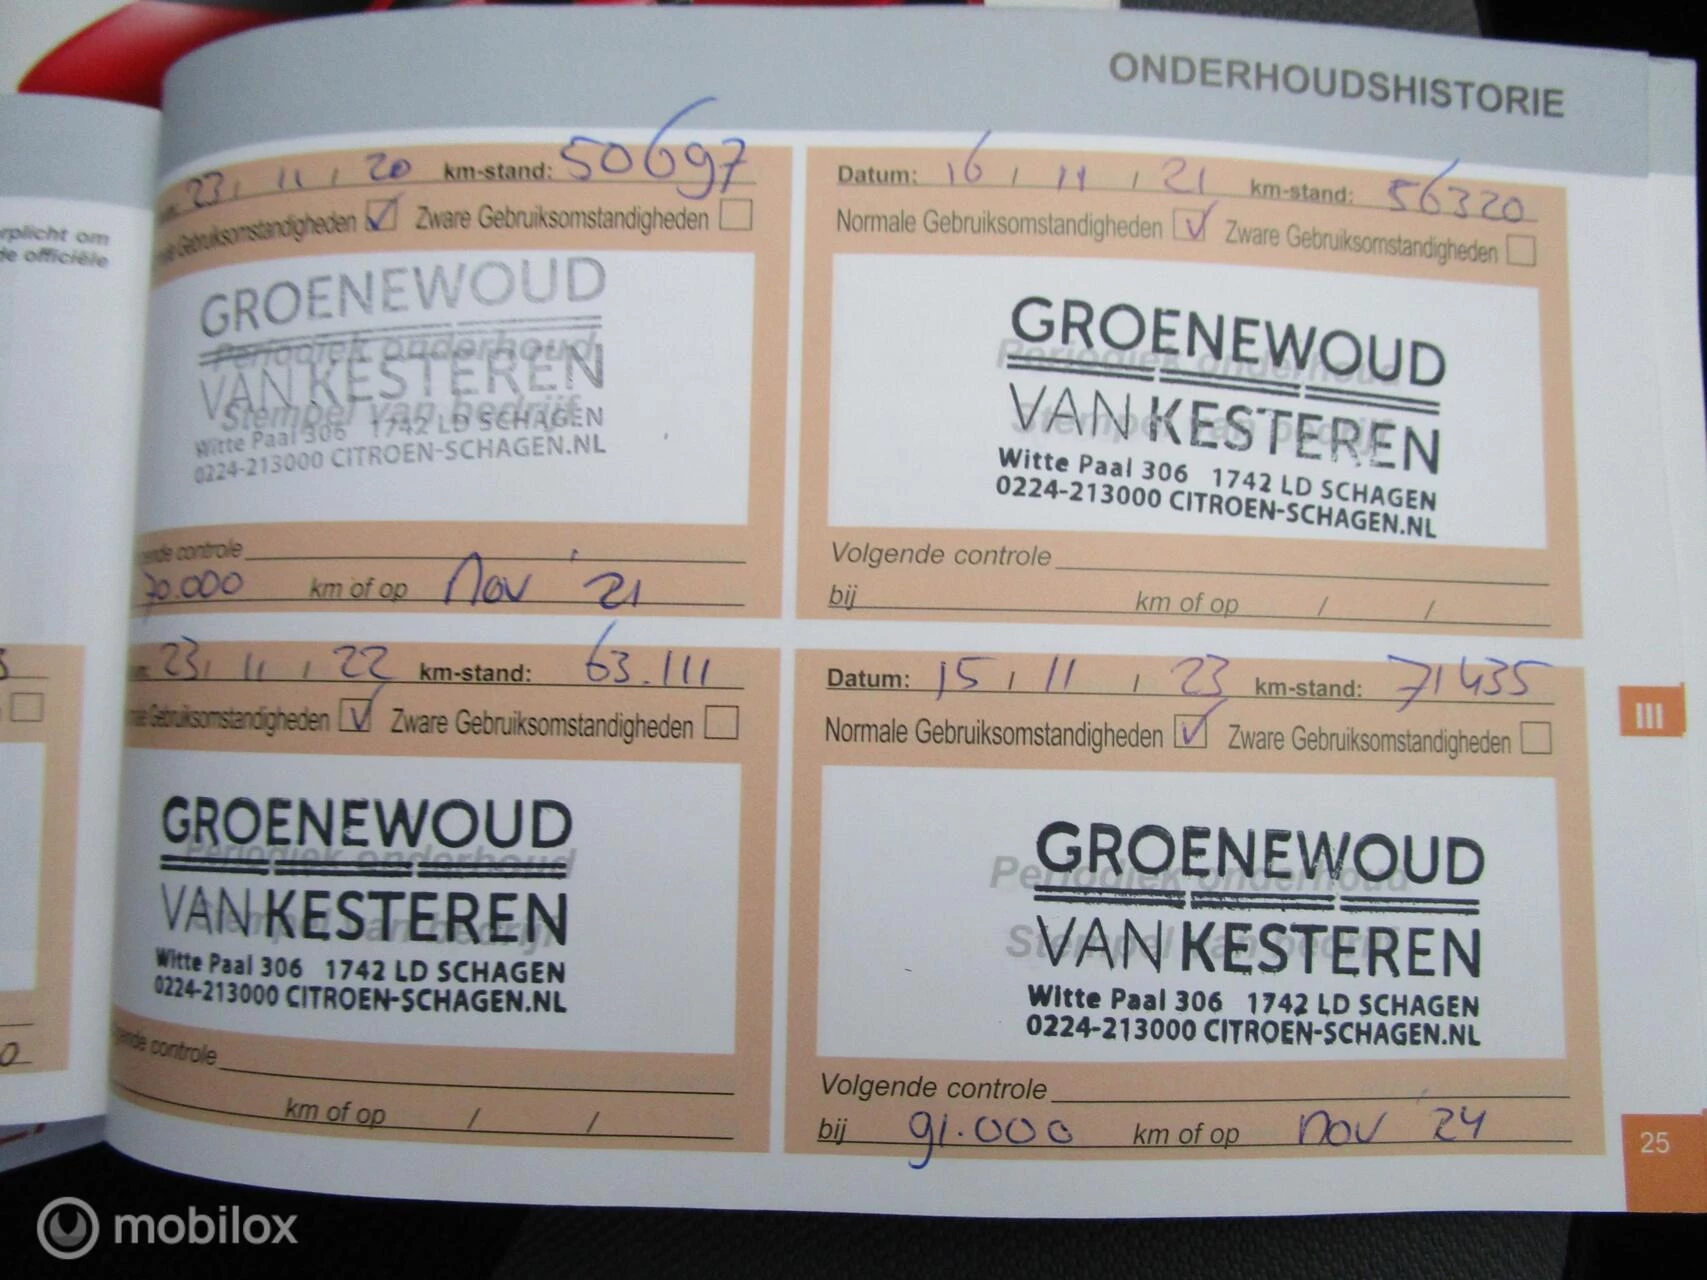 ONDERHOUDSHISTORIE
rplicht om
de officiële
23 / 11 / 20 km-stand: 50697
Gebruiksomstandigheden Zware Gebruiksomstandigheden
GROENEWOUD
Periodiek onderhoud
VAN KESTEREN
Stempel van bedrijf
Witte Paal 306 1742 LD SCHAGEN
0224-213000 CITROEN-SCHAGEN.NL
gende controle
70.000 km of op Nov 21
Datum: 16 / 11 / 21 km-stand: 56320
Normale Gebruiksomstandigheden Zware Gebruiksomstandigheden
GROENEWOUD
Periodiek onderhoud
VAN KESTEREN
Stempel van bedrijf
Witte Paal 306 1742 LD SCHAGEN
0224-213000 CITROEN-SCHAGEN.NL
Volgende controle
bij km of op / /
23 / 11 / 22 km-stand: 63.111
Gebruiksomstandigheden Zware Gebruiksomstandigheden
GROENEWOUD
Periodiek onderhoud
VAN KESTEREN
Stempel van bedrijf
Witte Paal 306 1742 LD SCHAGEN
0224-213000 CITROEN-SCHAGEN.NL
gende controle
km of op / /
Datum: 15 / 11 / 23 km-stand: 71435
Normale Gebruiksomstandigheden Zware Gebruiksomstandigheden
GROENEWOUD
Periodiek onderhoud
VAN KESTEREN
Stempel van bedrijf
Witte Paal 306 1742 LD SCHAGEN
0224-213000 CITROEN-SCHAGEN.NL
Volgende controle
bij 91.000 km of op nov 24
III
25
mobilox